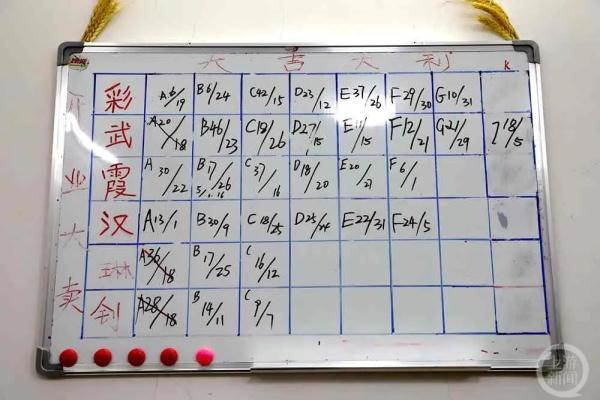 大吉大利 K
开业大卖
彩 A6/19 B6/24 C42/15 D23/12 E37/26 F29/30 G10/31
武 A20/18 B46/23 C18/26 D27/15 E11/15 F12/21 G21/29 18/5
霞 A30/22 B17/26 C37/16 D18/20 E20/21 F6/1
汉 A13/1 B30/9 C18/25 D25/24 E22/31 F24/5
琳 A36/18 B17/25 C16/12
钊 A28/18 B14/11 C9/7
上游新闻